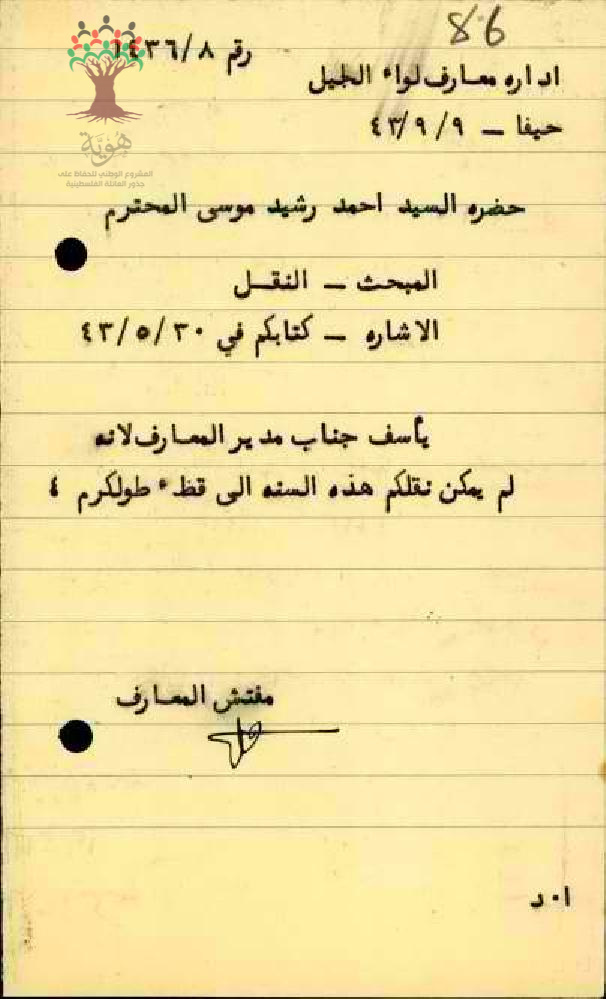 86
رقم ١٤٣٦/٨
اداره معارف لواء الجيل
حيفا – ٤٣/٩/٩
هوية
المشروع الوطني للحفاظ على
جذور العائلة الفلسطينية
حضره السيد احمد رشيد موسى المحترم
المبحث – النقل
الاشاره – كتابكم في ٤٣/٥/٣٠
يأسف جناب مدير المعارف لانه
لم يمكن نقلكم هذه السنه الى قظء طولكرم ؛
مفتش المعارف
ا٠د